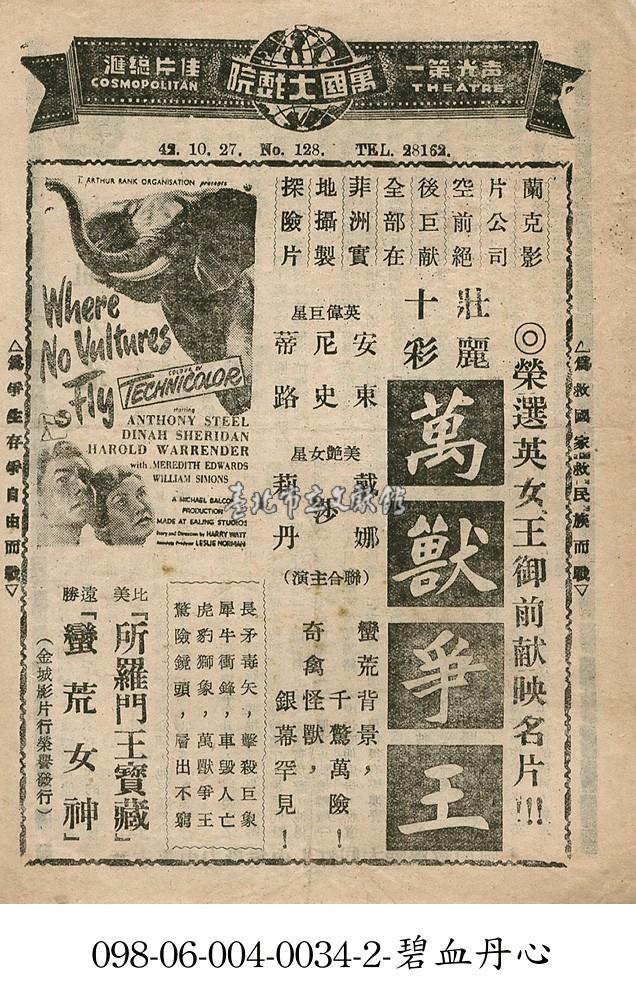 声光第一
萬國大戲院
佳片總滙
COSMOPOLITAN
THEATRE
42. 10. 27. No. 128. TEL. 28162.
△為救國家救民族而戰▽
◎榮選英女王御前献映名片!!!
蘭克影
片公司
空前絕
後巨献
全部在
菲洲實
地攝製
探險片
壯麗
十彩
萬獸爭王
英偉巨星
安東
尼史
蒂路
美艷女星
戴娜
莎
莉丹
(聯合主演)
蠻荒背景，
千驚萬險！
奇禽怪獸，
銀幕罕見！
長矛毒矢，擊殺巨象
犀牛衝鋒，車毀人亡
虎豹獅象，萬獸爭王
驚險鏡頭，層出不窮
比美『所羅門王寶藏』
遠勝『蠻荒女神』
(金城影片行榮譽發行)
J. ARTHUR RANK ORGANISATION presents
Where
No Vultures
Fly
COLOUR BY
TECHNICOLOR
starring
ANTHONY STEEL
DINAH SHERIDAN
HAROLD WARRENDER
with MEREDITH EDWARDS
WILLIAM SIMONS
A MICHAEL BALCON
PRODUCTION
MADE AT EALING STUDIOS
Story and Direction by HARRY WATT
Associate Producer LESLIE NORMAN
△為爭生存爭自由而戰▽
臺北市立文獻館
098-06-004-0034-2-碧血丹心